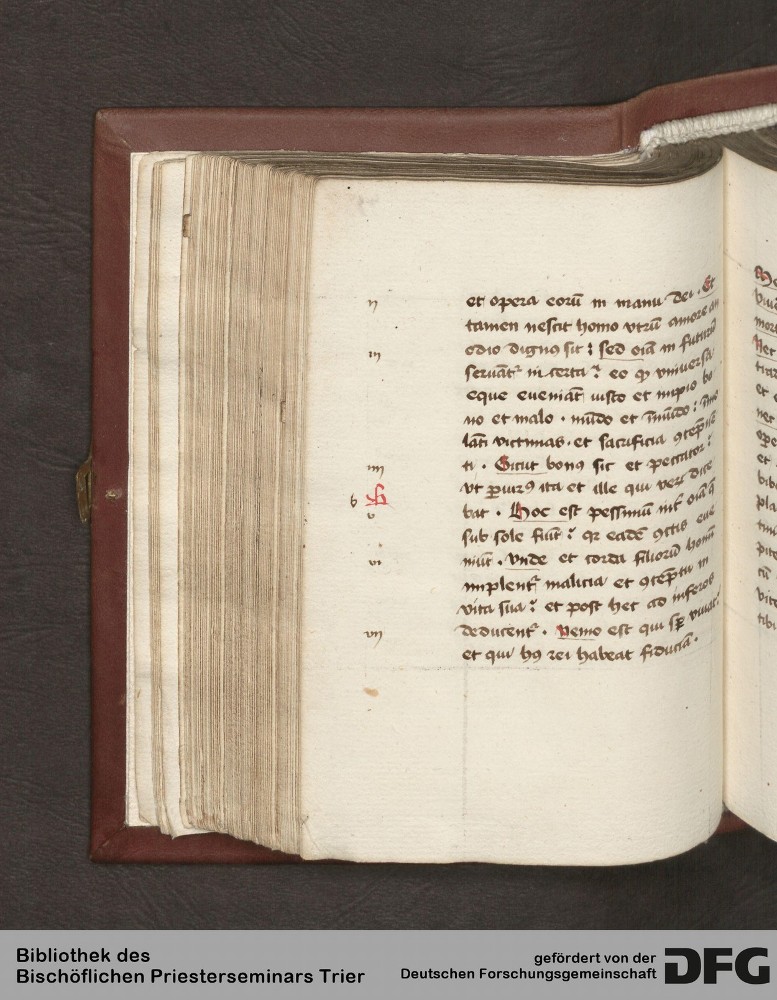 et opera eorū in manu dei . Et
tamen nescit homo vtrū amore an
odio dignus sit : sed oīa in futurū
seruāt᷑ incerta : eo qꝫ vniuersa
eque eueniāt iusto et impio bo
no et malo . mūdo et īmūdo :
lāti victimas . et sacrificia ꝯtēpnē
ti . Sicut bonꝰ sic et peccator :
vt ꝑiurꝰ ita et ille qui verū dice
bat . Hoc est pessimū int̄ oīa q̄
sub sole fiūt : qꝛ eadē ꝯctis eue
niūt . vnde et corda filiorū homī
implent᷑ malicia et ꝯtēptu in
vita sua : et post hec ad inferos
deducent᷑ . Nemo est qui sꝑ viuat :
et qui hꝰ rei habeat fiduciā .
ii
iii
iiii
g
vi
vii
Bibliothek des
Bischöflichen Priesterseminars Trier
gefördert von der
Deutschen Forschungsgemeinschaft
DFG